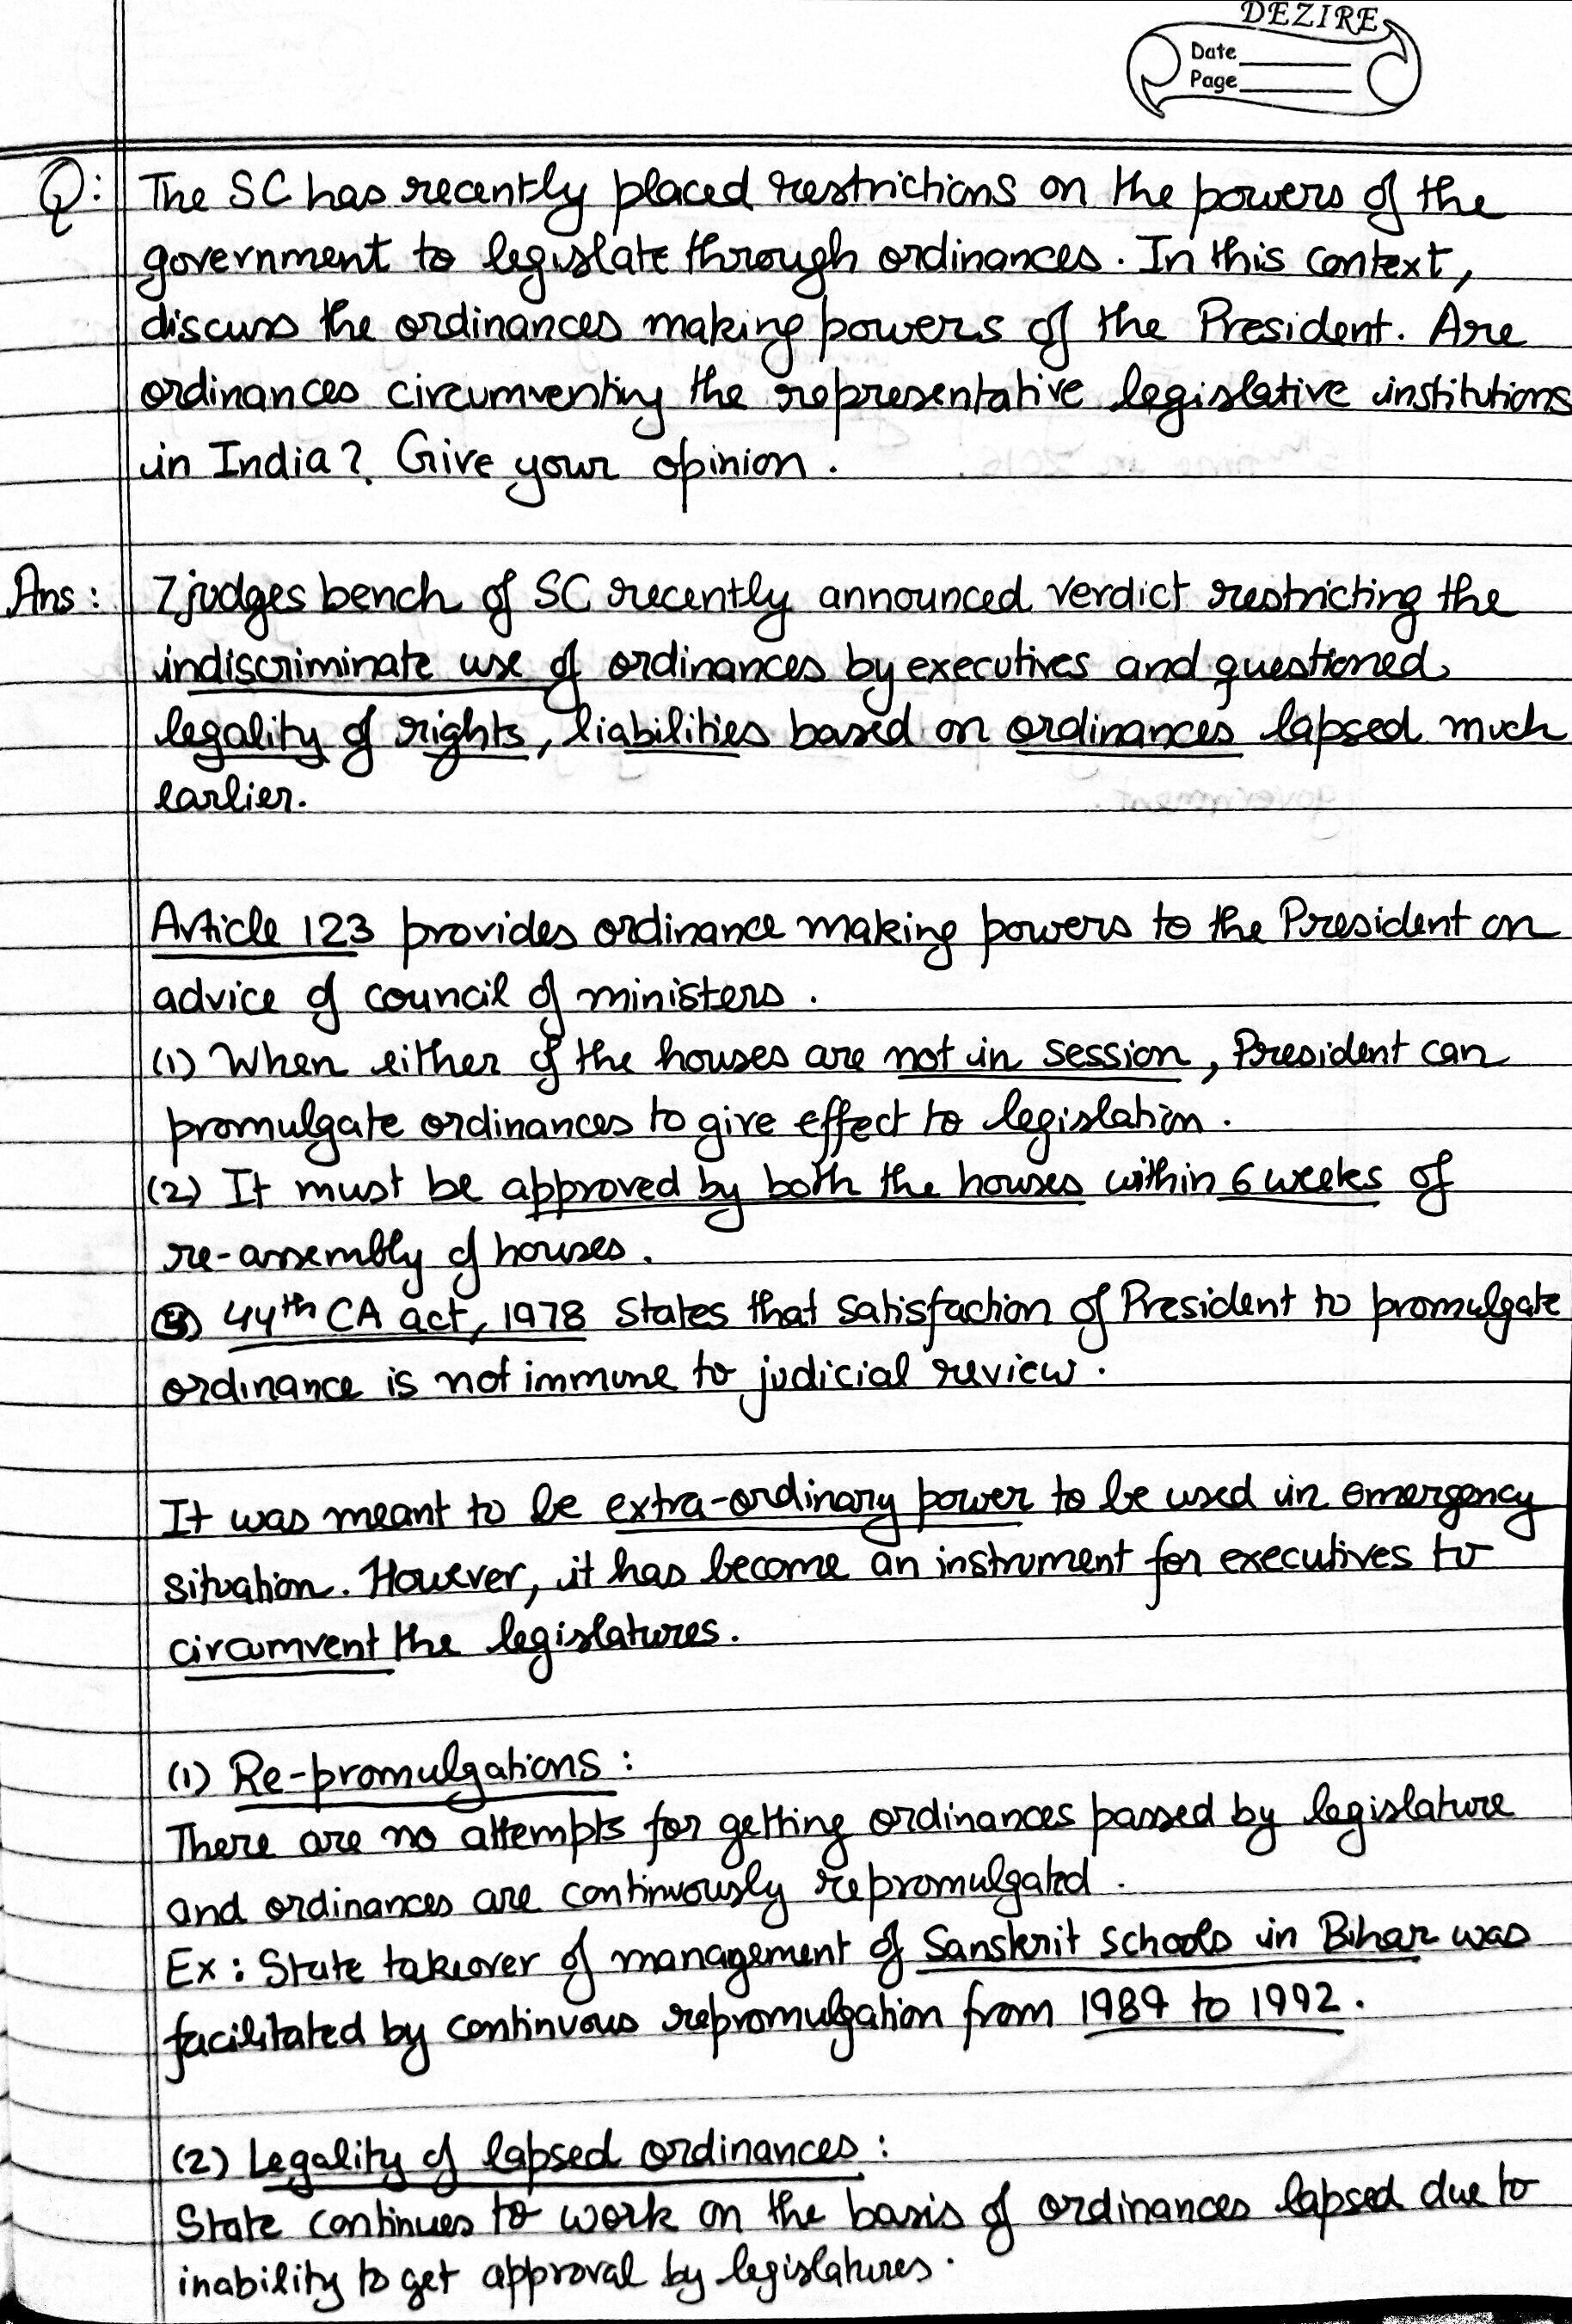 DEZIRE
Date
Page
Q: The SC has recently placed restrictions on the powers of the
government to legislate through ordinances. In this context,
discuss the ordinances making powers of the President. Are
ordinances circumventing the representative legislative institutions
in India? Give your opinion.
Ans: 7 judges bench of SC recently announced verdict restricting the
indiscriminate use of ordinances by executives and questioned
legality of rights, liabilities based on ordinances lapsed much
earlier.
Article 123 provides ordinance making powers to the President on
advice of council of ministers.
(1) When either of the houses are not in session, President can
promulgate ordinances to give effect to legislation.
(2) It must be approved by both the houses within 6 weeks of
re-assembly of houses.
(3) 44th CA act, 1978 states that satisfaction of President to promulgate
ordinance is not immune to judicial review.
It was meant to be extra-ordinary power to be used in emergency
situation. However, it has become an instrument for executives to
circumvent the legislatures.
(1) Re-promulgations:
There are no attempts for getting ordinances passed by legislature
and ordinances are continuously repromulgated.
Ex: State takeover of management of Sanskrit schools in Bihar was
facilitated by continuous repromulgation from 1989 to 1992.
(2) Legality of lapsed ordinances:
State continues to work on the basis of ordinances lapsed due to
inability to get approval by legislatures.